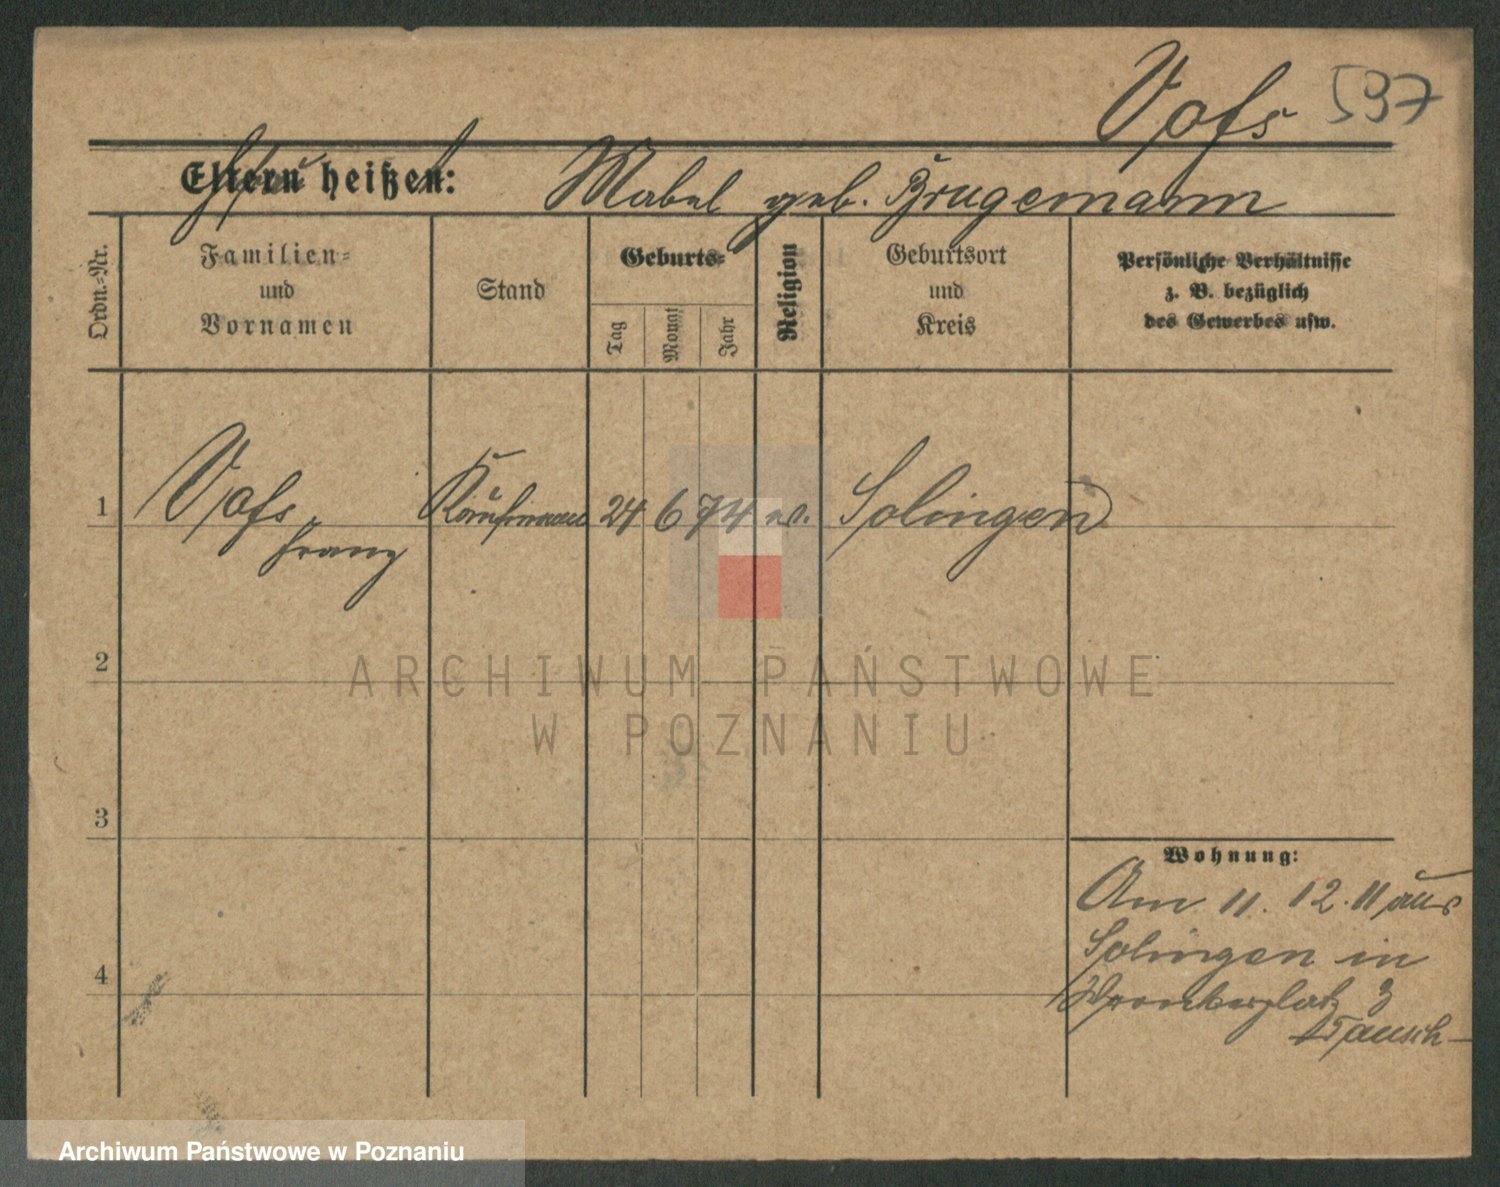 Voſs 597
Eltern heißen: Mabel geb. Brugemann
Ordn.-Nr.
Familien-
und
Vornamen
Stand
Geburts-
Tag
Monat
Jahr
Religion
Geburtsort
und
Kreis
Persönliche Verhältnisse
z. B. bezüglich
des Gewerbes usw.
1 Voſs Kaufmann 24 6 74 ev. Solingen
Franz
2
ARCHIWUM PAŃSTWOWE
W POZNANIU
3
Wohnung:
Am 11. 12. 11 aus
Solingen in
4
3
Tausch
Archiwum Państwowe w Poznaniu